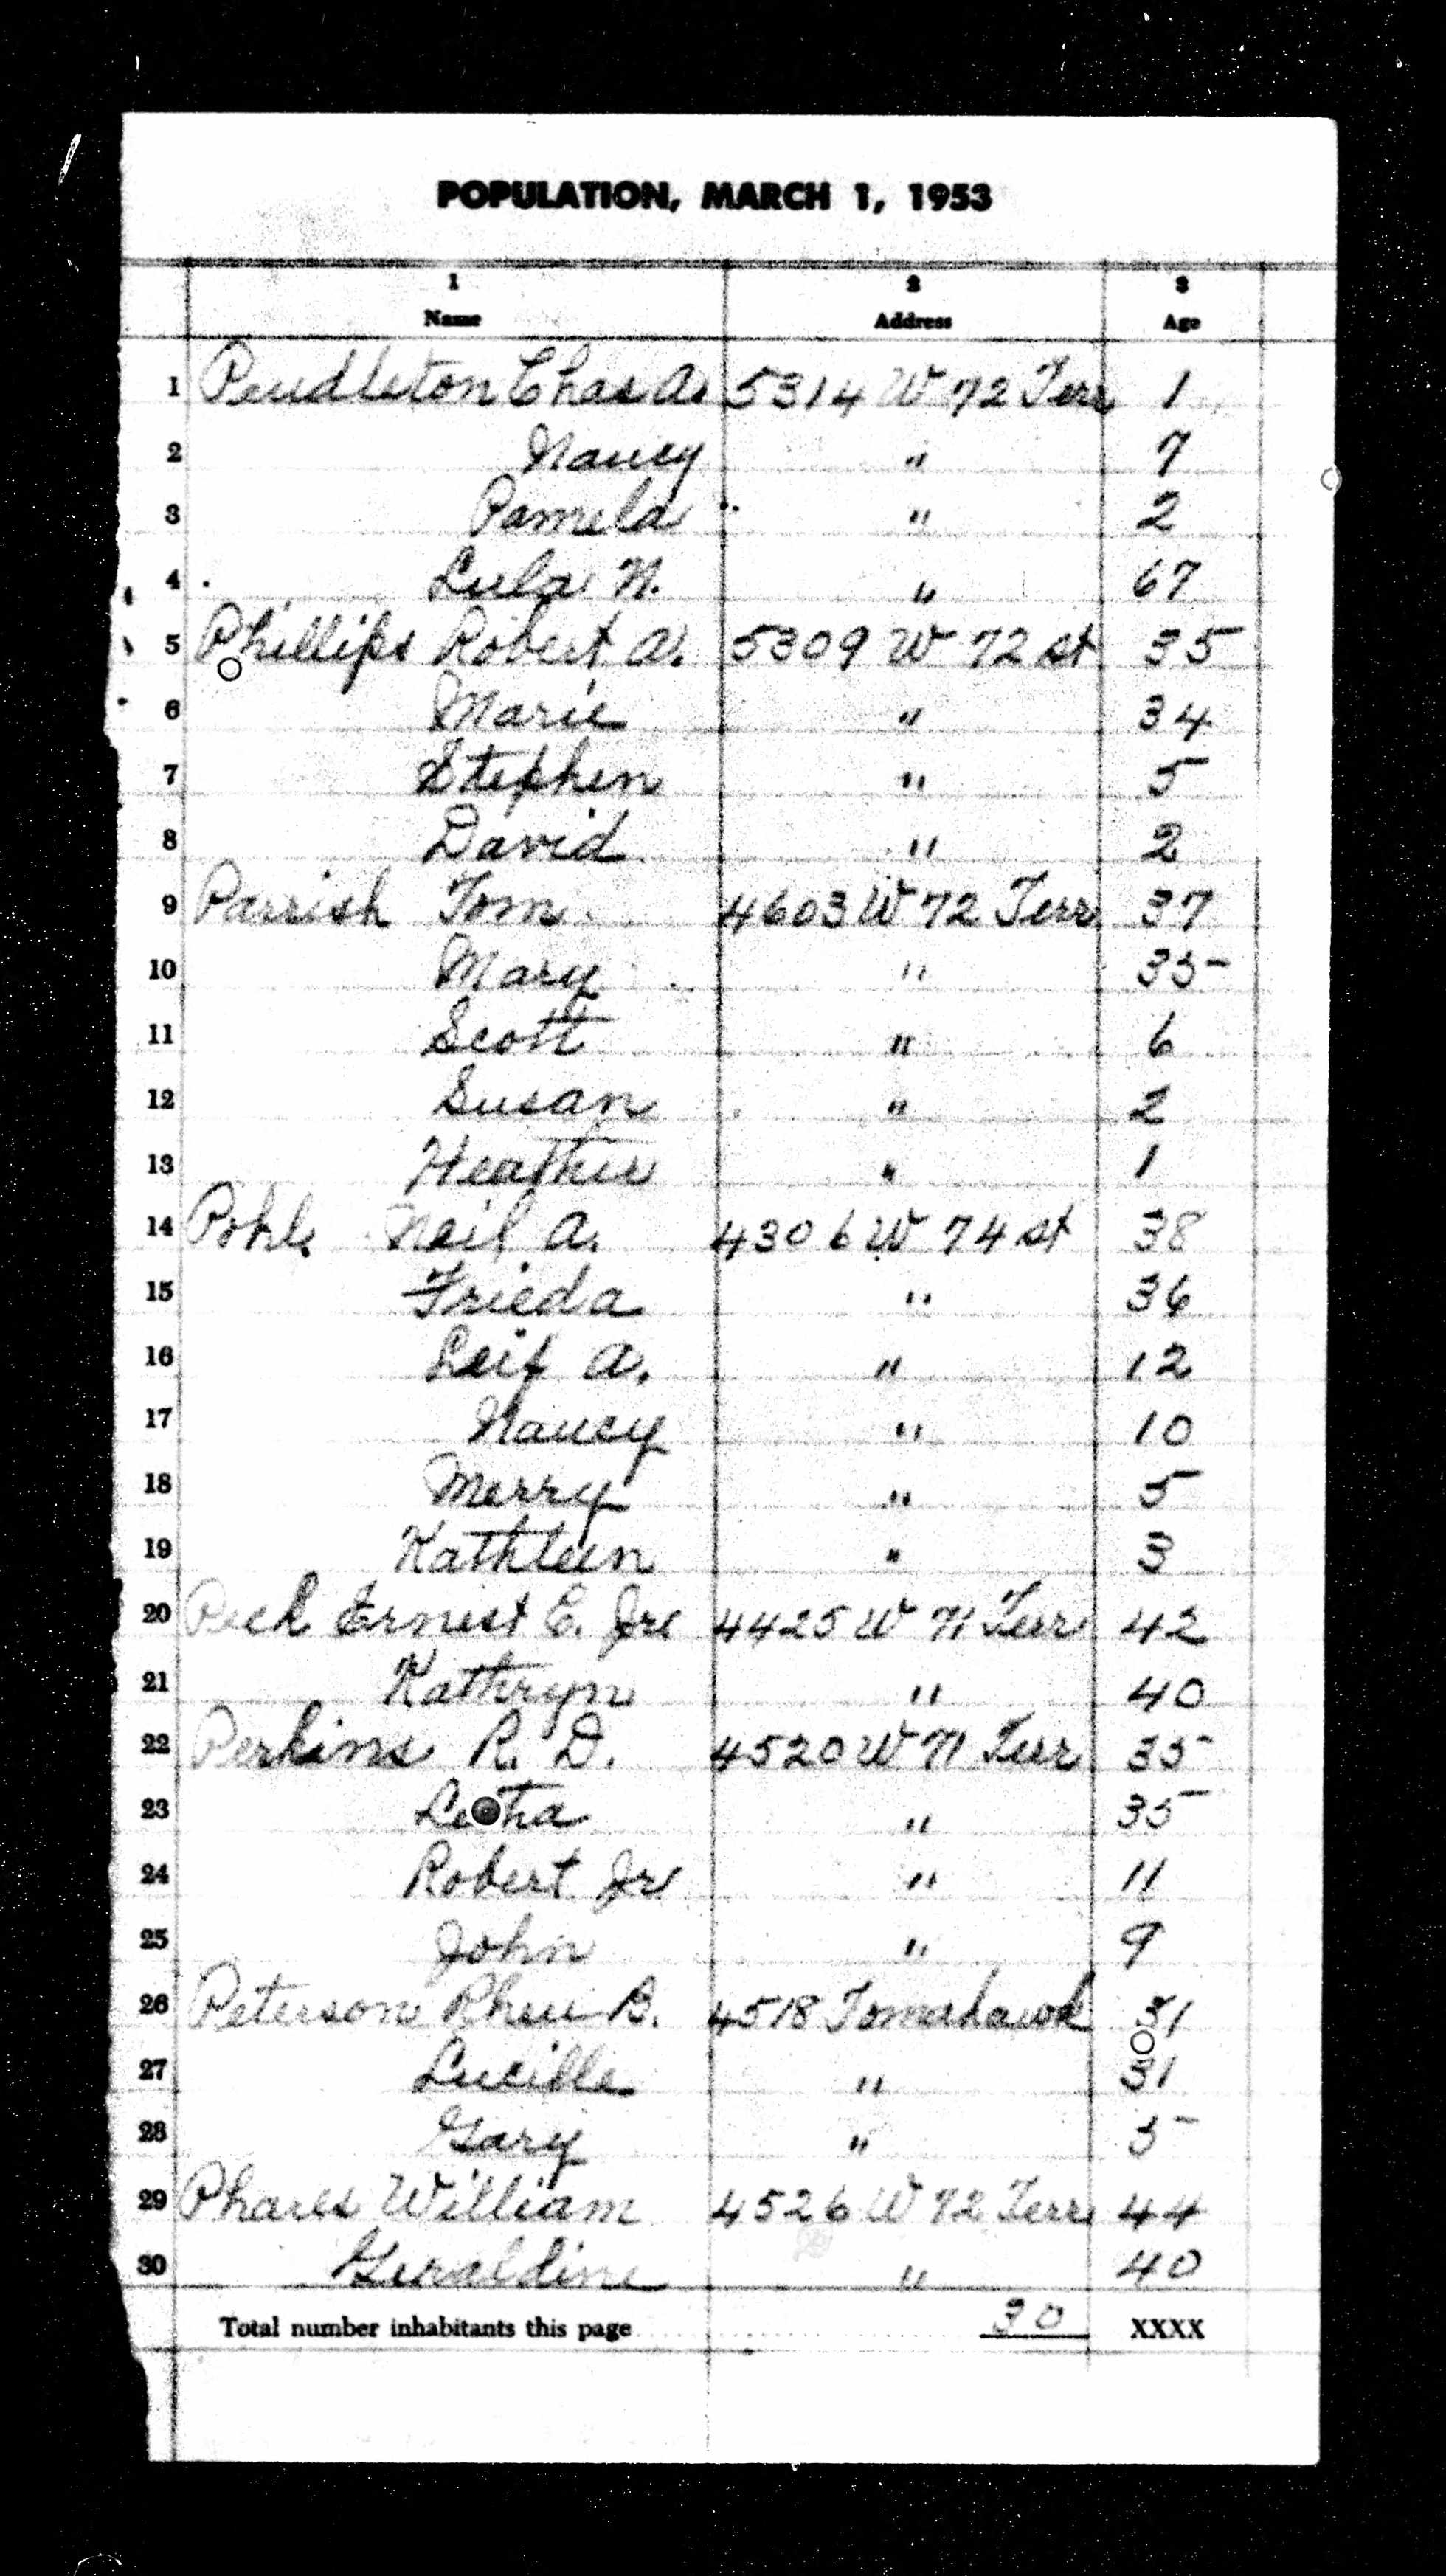 POPULATION, MARCH 1, 1953
1 2 3
Name Address Age
1 Pendleton Chas A. 5314 W 72 Terr 1
2 Nancy " 7
3 Pamela " " 2
4 Lula N. " 67
5 Phillips Robert A. 5309 W 72 st 35
6 Marie " 34
7 Stephen " 5
8 David " 2
9 Parrish Tom 4603 W 72 Terr 37
10 Mary " 35
11 Scott " 6
12 Susan " 2
13 Heather " 1
14 Pohl Neil A. 4306 W 74 st 38
15 Frieda " 36
16 Leif A. " 12
17 Nancy " 10
18 Merry " 5
19 Kathleen " 3
20 Peck Ernest E. Jr 4425 W 71 Terr 42
21 Kathryn " 40
22 Perkins R. D. 4520 W 71 Terr 35
23 " 35
24 Robert Jr " 11
25 John " 9
26 Peterson B. 4518 Tomahawk 31
27 Lucille " 31
28 Gary " 5
29 Phares William 4526 W 72 Terr 44
30 Geraldine " 40
Total number inhabitants this page 30 XXXX